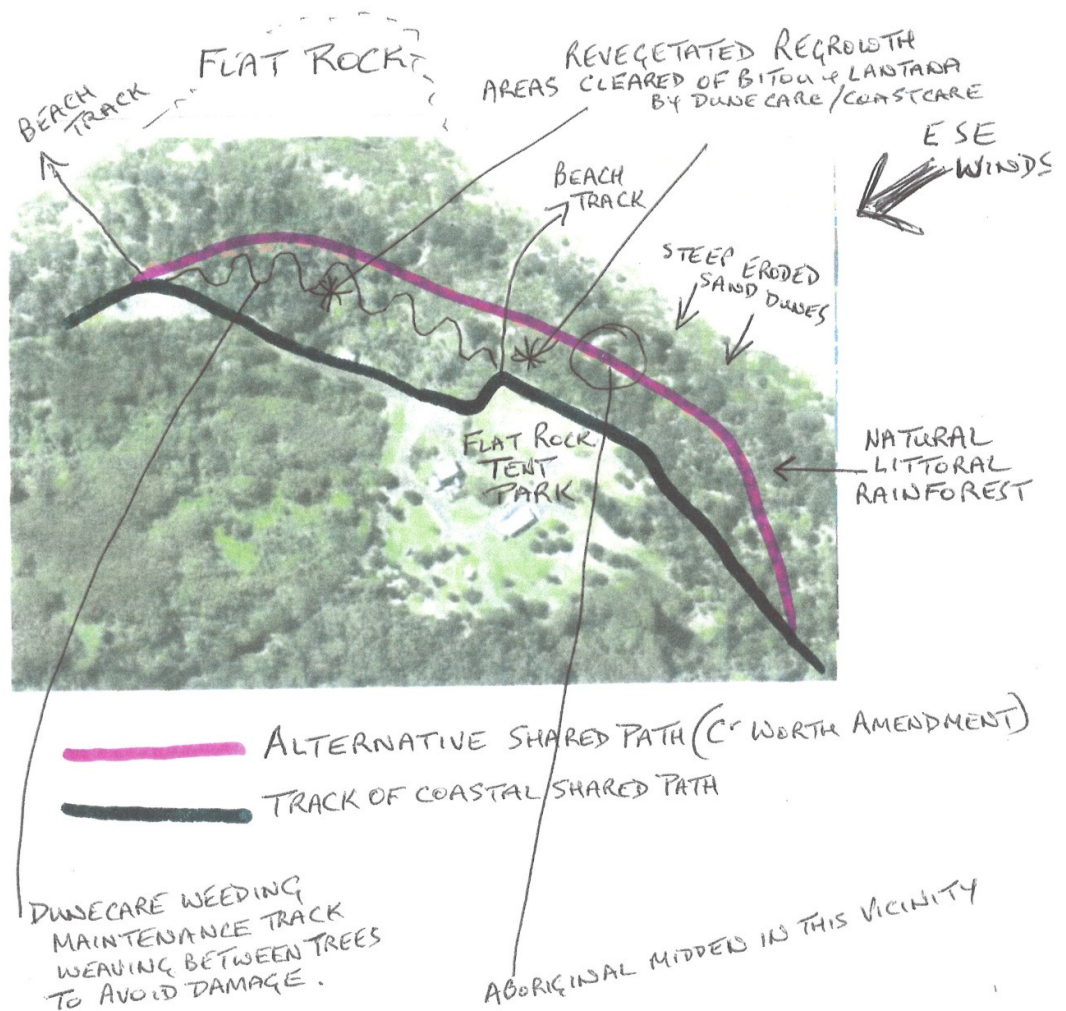 FLAT ROCK
REVEGETATED REGROWTH
AREAS CLEARED OF BITOU & LANTANA
BY DUNECARE/COASTCARE
BEACH
TRACK
ESE
WINDS
BEACH
TRACK
STEEP ERODED
SAND DUNES
NATURAL
LITTORAL
RAINFOREST
FLAT ROCK
TENT
PARK
ALTERNATIVE SHARED PATH (Cr WORTH AMENDMENT)
TRACK OF COASTAL SHARED PATH
DUNECARE WEEDING
MAINTENANCE TRACK
WEAVING BETWEEN TREES
TO AVOID DAMAGE.
ABORIGINAL MIDDEN IN THIS VICINITY